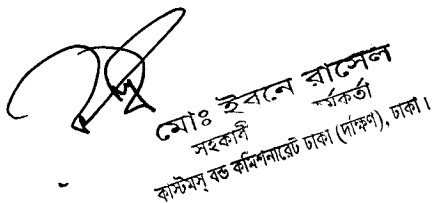 মোঃ ইবনে রাসেল
সহকারী
কাস্টমস্ বন্ড কমিশনারেট ঢাকা (দক্ষিণ), ঢাকা।